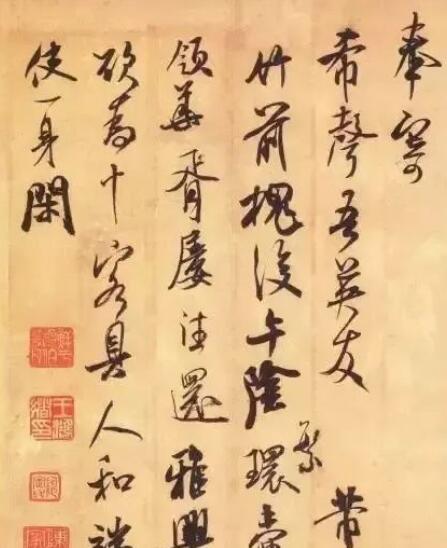 奉寄
希聲吾英友　芾
竹前槐後午陰環
繁
領華胥屢往還雅興
欲為十客具人和
使一身閑